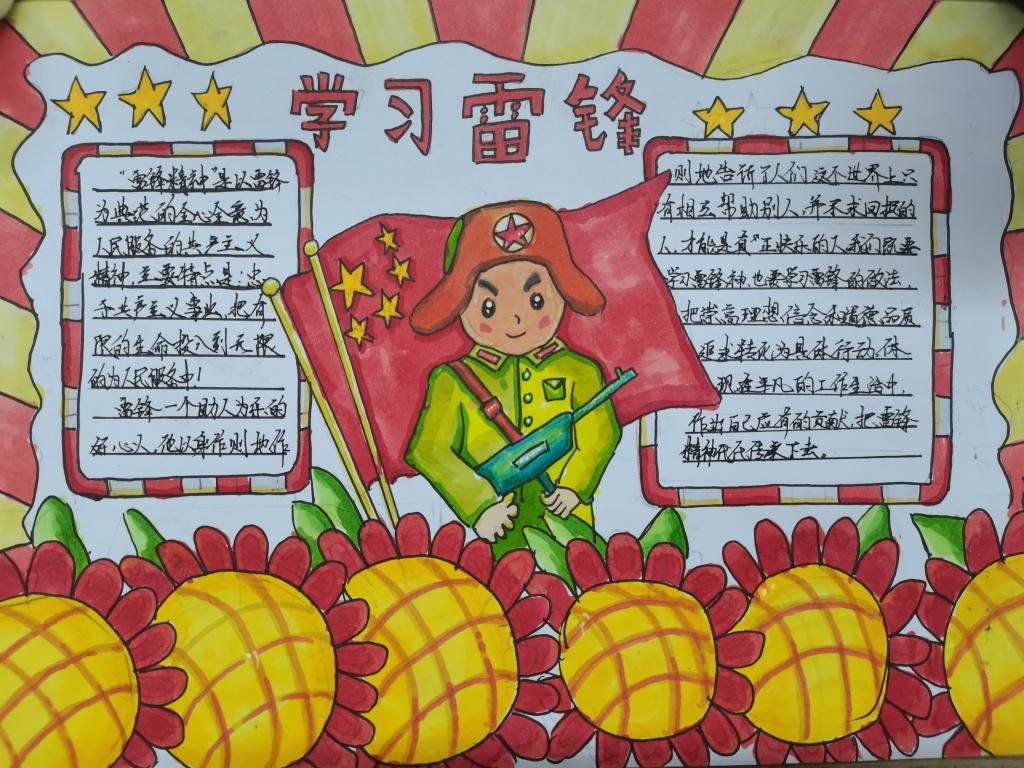 学习雷锋
"雷锋精神"是以雷锋
为典范的全心全意为
人民服务的共产主义
精神,主要特点是:忠
于共产主义事业,把有
限的生命投入到无限
的为人民服务中!
雷锋一个助人为乐的
好心人,他以身作则地作
则地告诉了人们这个世界上只
有相互帮助别人,并不求回报的
人,才能是真"正快乐的人我们既要
学习雷锋神,也要学习雷锋的做法,
把崇高理想信念和道德品质
追求转化为具体行动,体
现在平凡的工作生活中,
作出自己应有的贡献,把雷锋
精神代代传承下去。